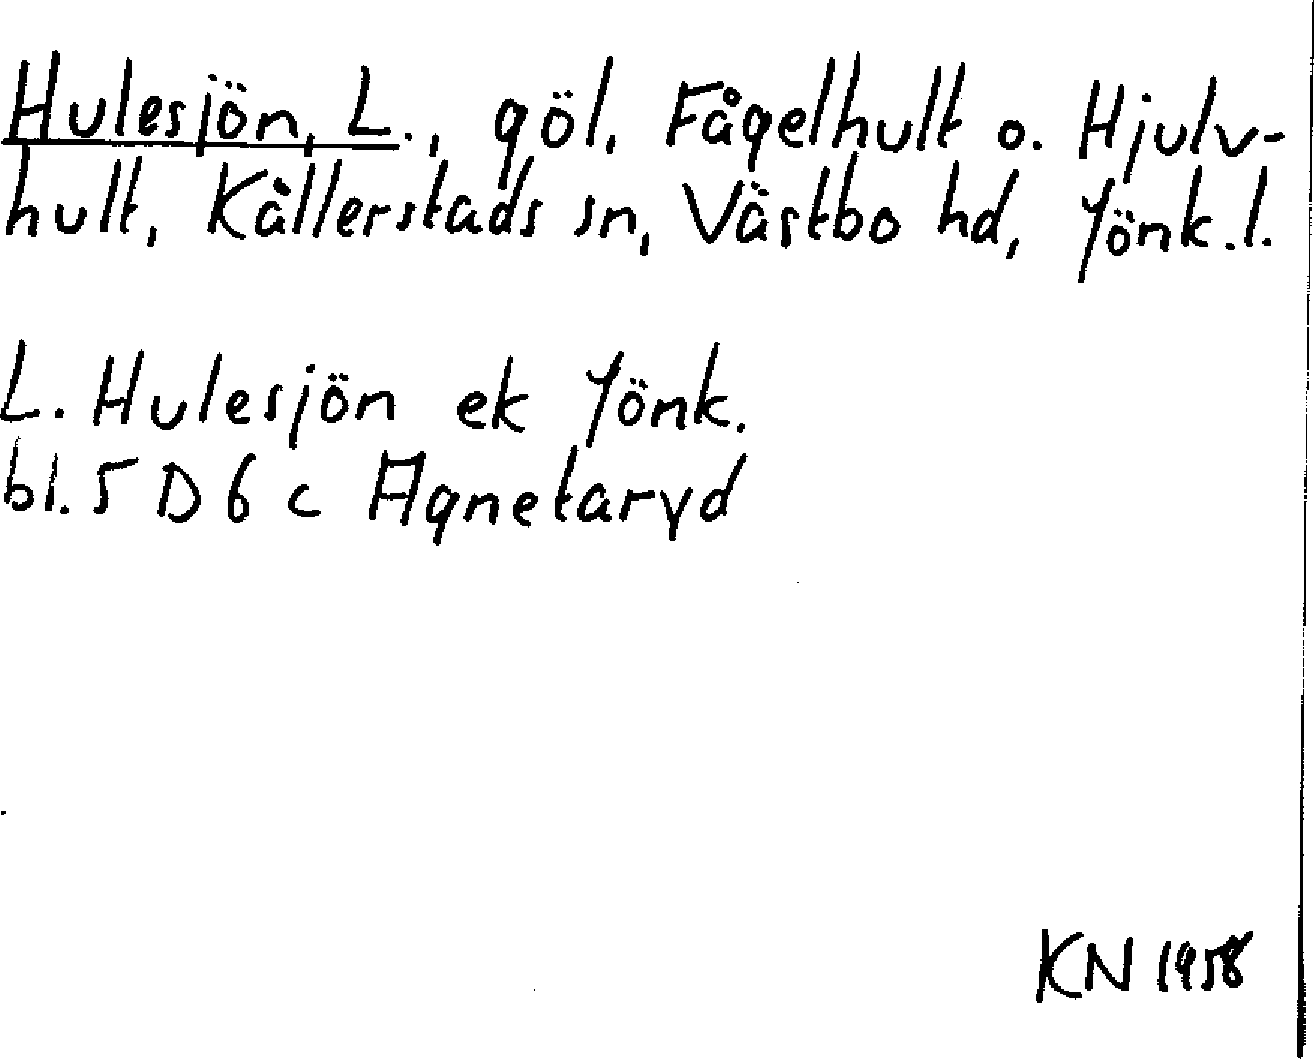 Hulesjön, L., göl, Fågelhult o. Hjulv-
hult, Kållerstads sn, Västbo hd, Jönk.l.
L. Hulesjön ek Jönk.
bl. 5 D 6 c Agnetaryd
KN 1958